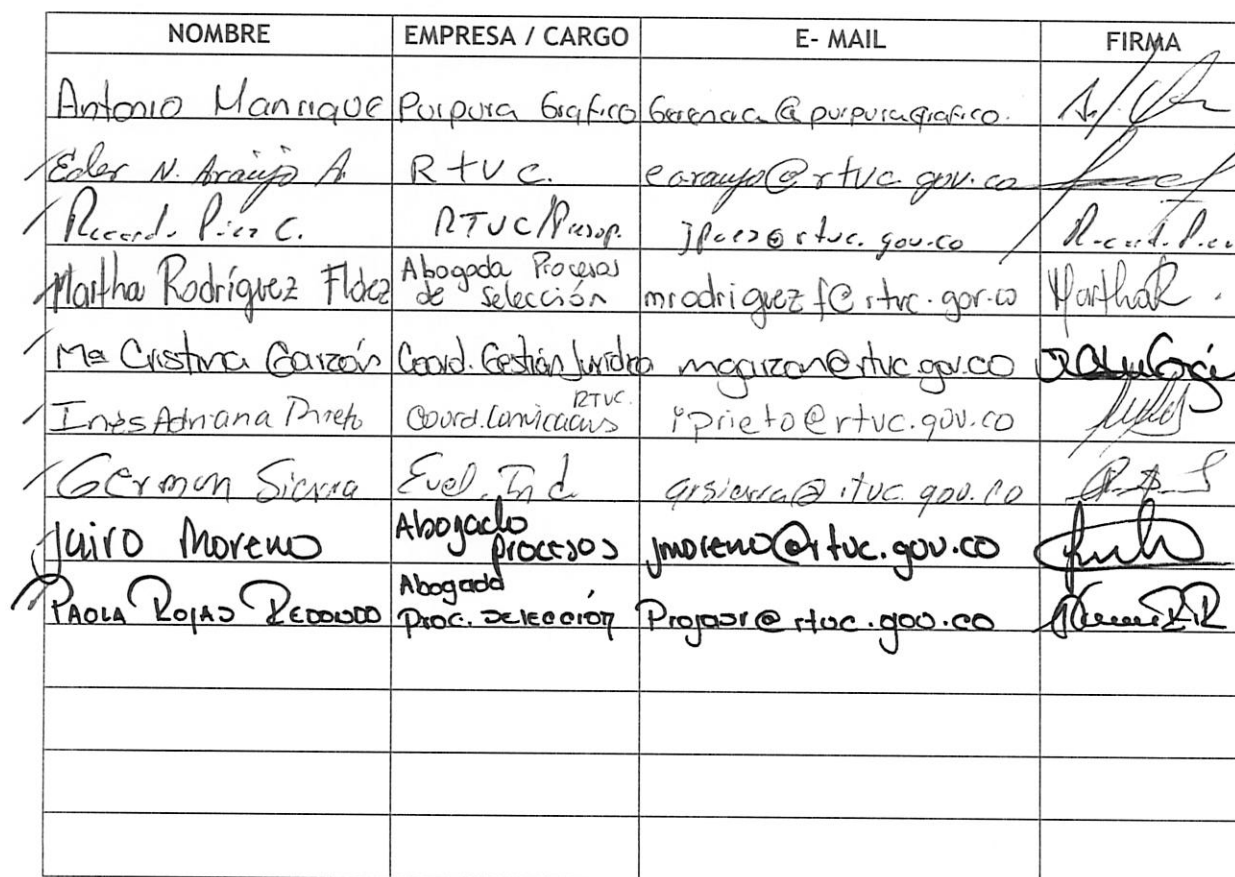 NOMBRE EMPRESA / CARGO E- MAIL FIRMA
Antonio Manrique Purpura Grafico Gerencia @ purpuragrafico.
Eder N. Araujo A. RTVC. earaujo@rtvc.gov.co
Ricardo C. RTVC/Presup. jpaez@rtvc.gov.co
Abogada Procesos
Martha Rodríguez Flórez de selección mrodriguezf@rtvc.gov.co MarthaR.
Ma Cristina Garzón Coord. Gestión Jurídica mgarzon@rtvc.gov.co
RTVC
Inés Adriana Prieto Coord. iprieto@rtvc.gov.co
German Sierra Ind. grsierra@rtvc.gov.co
Abogado
Jairo Moreno procesos jmoreno@rtvc.gov.co
Abogada
PAOLA ROJAS REDONDO Proc. selección Projasr@rtvc.gov.co